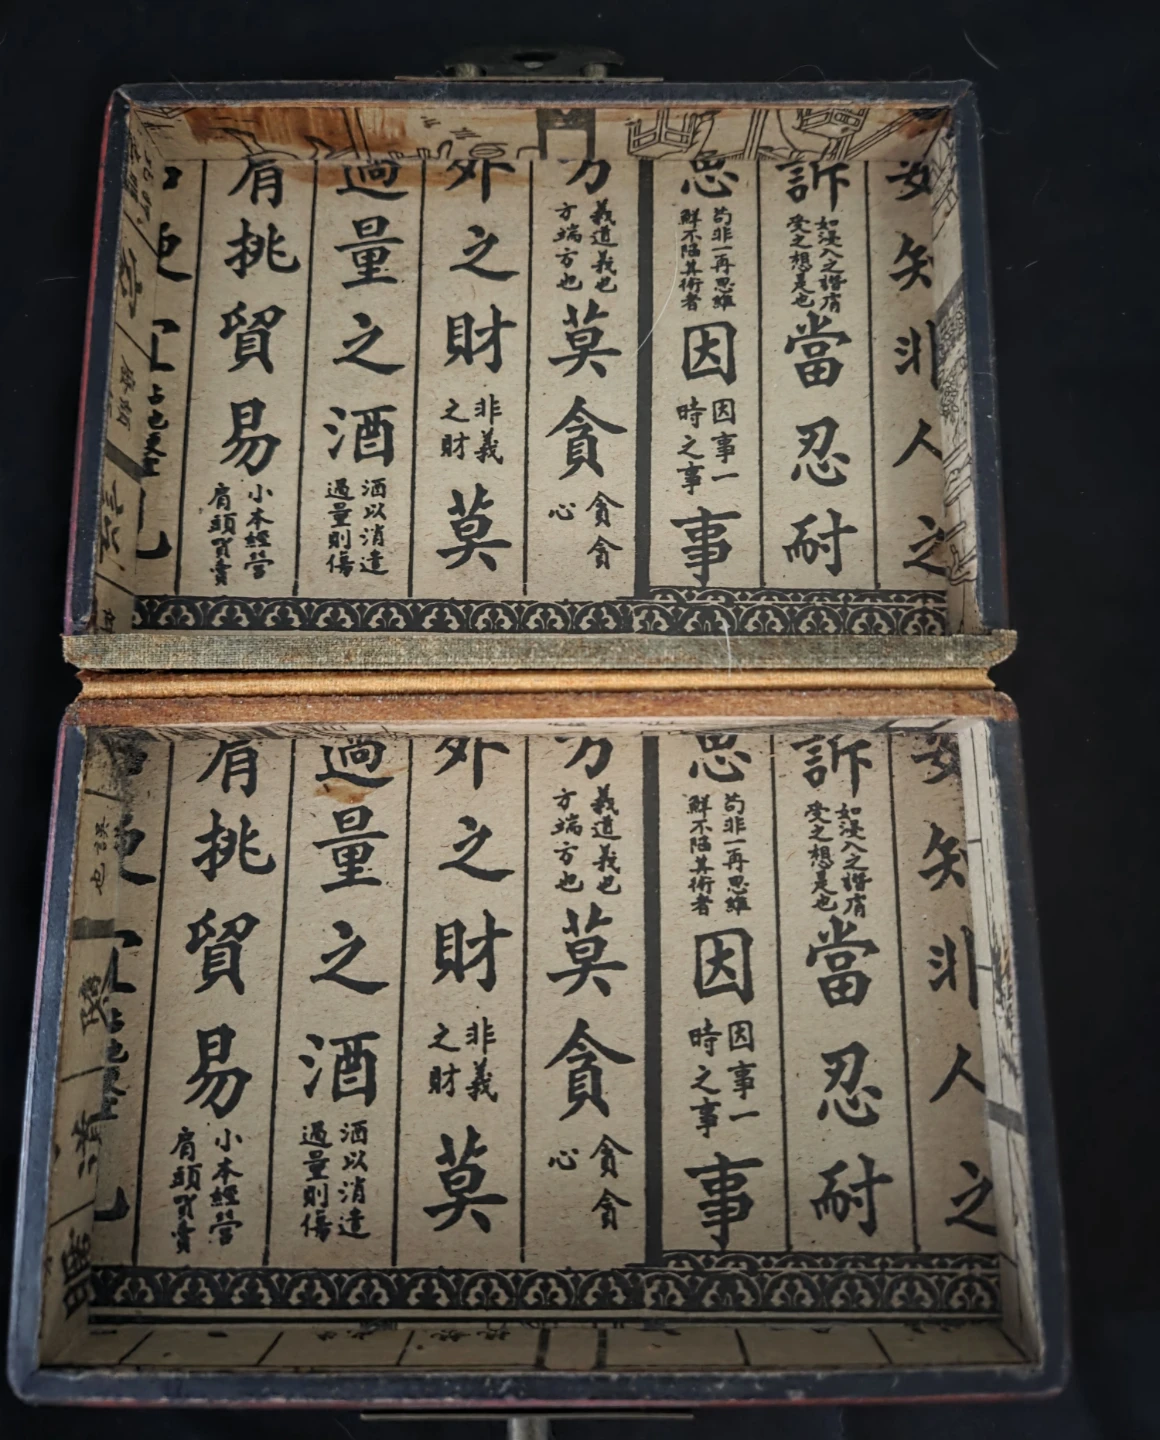 知非人之
訴
如浸入之譖膚
受之想是也
當忍耐
思
苟非一再思維
鮮不陷其術者
因
因事一
時之事
事
方
義道義也
方端方也
莫貪
貪貪
心
外之財
非義
之財
莫
過量之酒
酒以消遣
過量則傷
肩挑貿易
小本經營
肩頭買賣
知非人之
訴
如浸入之譖膚
受之想是也
當忍耐
思
苟非一再思維
鮮不陷其術者
因
因事一
時之事
事
方
義道義也
方端方也
莫貪
貪貪
心
外之財
非義
之財
莫
過量之酒
酒以消遣
過量則傷
肩挑貿易
小本經營
肩頭買賣